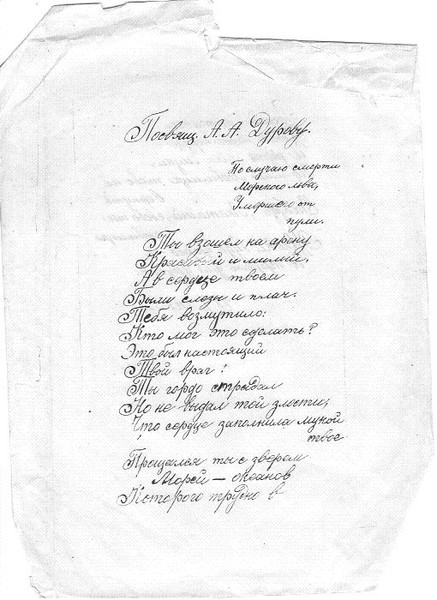 Посвящ. А. А. Дурову.
По случаю смерти
Морского льва,
Умершего от
пули.
Ты взошел на арену
Красивый и милый.
А в сердце твоем
Были слезы и плач.
Тебя возмутило:
Кто мог это сделать?
Это был настоящий
Твой враг!
Ты гордо страдал
Но не выдал той злости,
Что сердце заполнила мукой
твое
Прощался ты с зверем
Морей — океанов
Которого трудно в